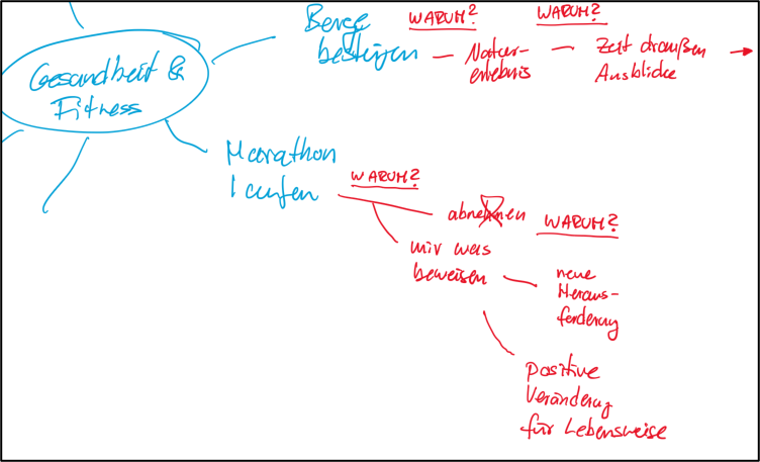 Gesundheit &
Fitness
Berge
besteigen
WARUM?
Natur-
erlebnis
WARUM?
Zeit draußen
Ausblicke
Marathon
laufen
WARUM?
abnehmen
mir was
beweisen
WARUM?
neue
Heraus-
forderung
positive
Veränderung
für Lebensweise